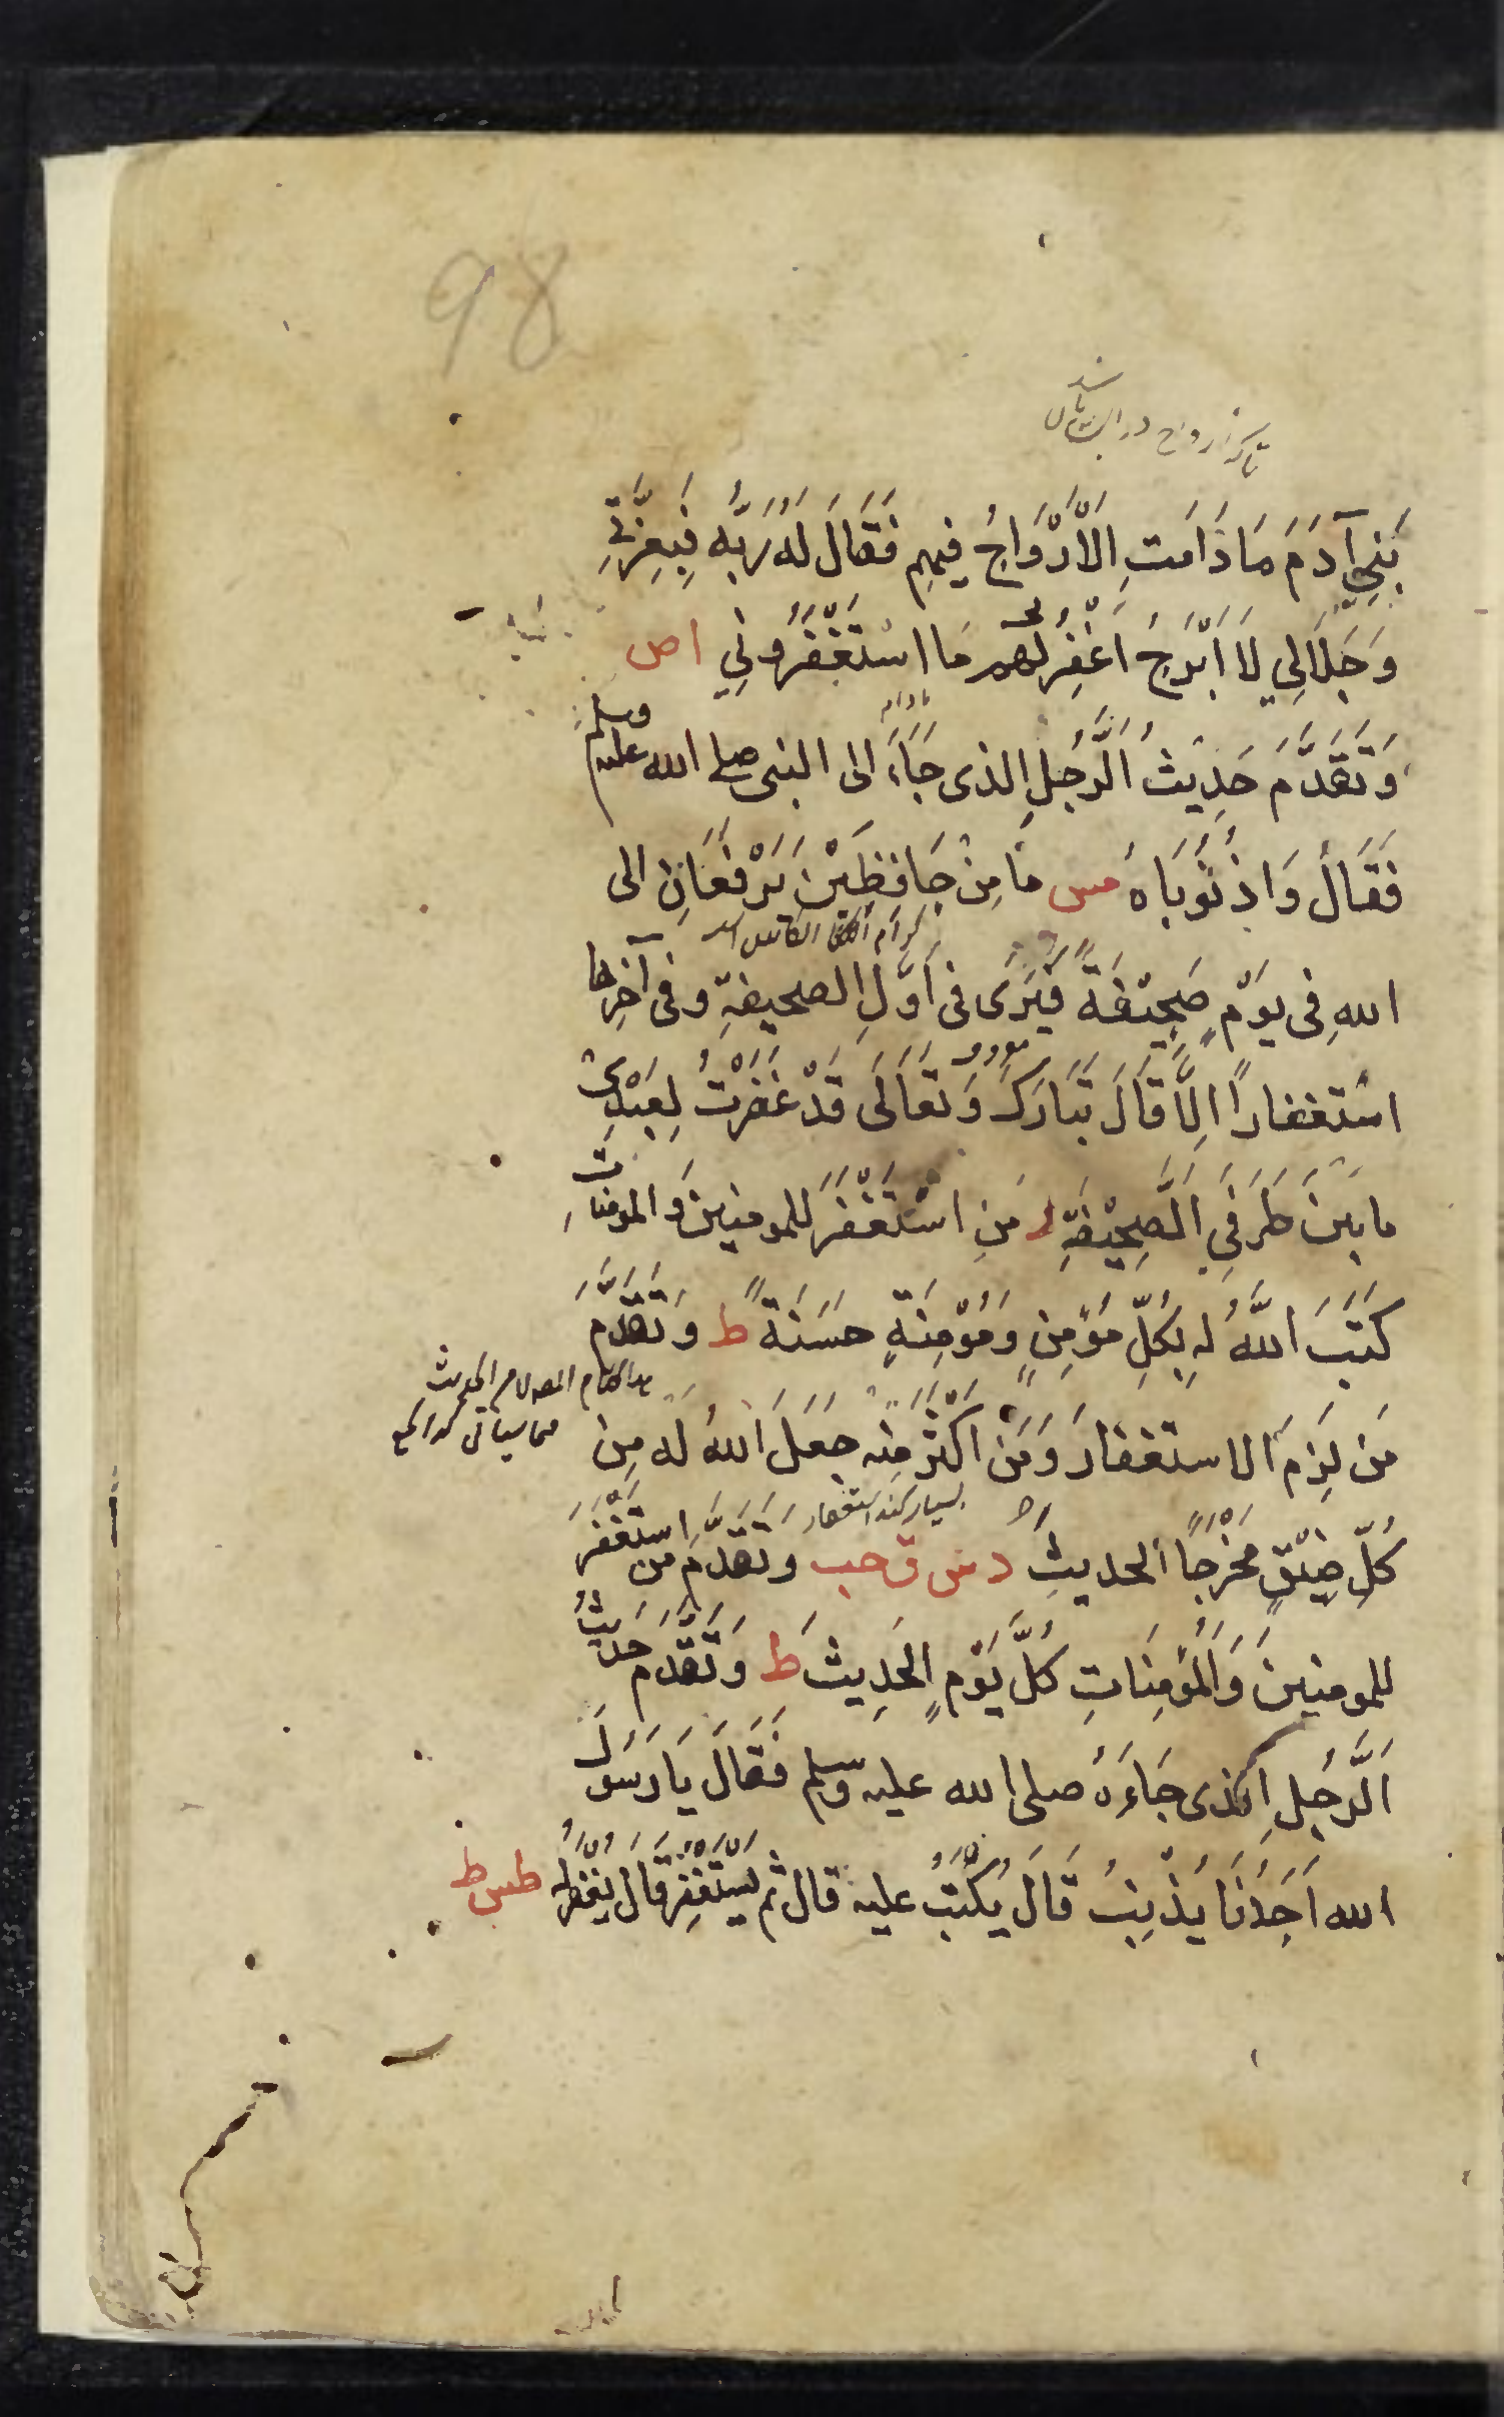 98
بَنِي آدَمَ مَا دَامَتِ الْاَرْوَاحُ فِيهِم فَقَالَ لَهُ رَبُّه فَبِعِزَّتِي
وَجَلَالِي لَا اَبْرَحُ اَغْفِرُ لَهم مَا اسْتَغْفَرُونِي ا ص
وَتَقَدَّمَ حَدِيثُ الرَّجُلِ الذى جَاءَ الى النبى صلى الله عليه وسلم
فَقَالَ وَاذُنُوبَاهُ مس مَا مِنْ حَافِظَيْنِ يَرْفَعَانِ الى
اللهِ فى يَوْمٍ صَحِيْفَةً فَيَرَى فى اَوَّلِ الصحيفةِ وفى آخِرِها
اسْتغفارًا اِلَّا قَالَ تَبَارَكَ وَتَعَالَى قَدْ غَفَرْتُ لِعَبْدِىْ
ما بَيْنَ طَرَفَيِ الصَّحِيْفَةِ ر مَنِ اسْتَغْفَرَ للمومنِينَ والمومناتِ
كَتَبَ اللَّهُ لَه بِكُلِّ مُؤْمِنٍ وَمُؤْمِنَةٍ حَسَنَةً ط وَتَقَدَّمَ
مَن لَزِمَ الاستغفارَ وَمَنْ اَكْثَرَ مِنْه جَعَلَ اللهُ لَه مِن
كُلِّ ضِيْقٍ مَخْرَجًا الحديثَ د س ق حب وتَقَدَّمَ مَنِ اسْتَغْفَرَ
للمومنِينَ وَالْمُؤْمِنَاتِ كُلَّ يَوْمٍ الحَدِيثَ ط وَتَقَدَّمَ حَدِيثُ
الرَّجُلِ الذى جَاءَهُ صلى الله عليه وسلم فَقَالَ يَا رَسُولَ
الله اَحَدُنَا يُذْنِبُ قَالَ يُكْتَبُ عليه قال ثم يَسْتَغْفِرُ قَالَ يُغْفَرُ له طس ط